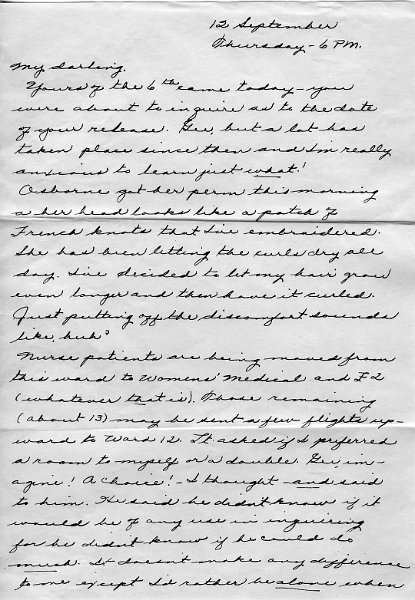 12 September
Thursday - 6 P.M.
My darling,
Yours of the 6th came today - you
were about to inquire as to the date
of your release. Gee, but a lot has
taken place since then and I'm really
anxious to learn just what!
Osborne got her perm this morning
& her head looks like a patch of
French knots that I've embroidered.
She has been letting the curls dry all
day. I've decided to let my hair grow
even longer and then have it curled.
Just putting off the discomfort sounds
like, huh?
Nurse patients are being moved from
this ward to Womens' Medical and I-2
(whatever that is). Those remaining
(about 13) may be sent a few flights up-
ward to Ward 12. Lt asked if I preferred
a room to myself or a double. Gee, im-
agine! A choice! - I thought - and said
to him. He said he didn't know if it
would be of any use in inquiring
for he didn't know if he could do
much. It doesn't make any difference
to me except I'd rather be alone when